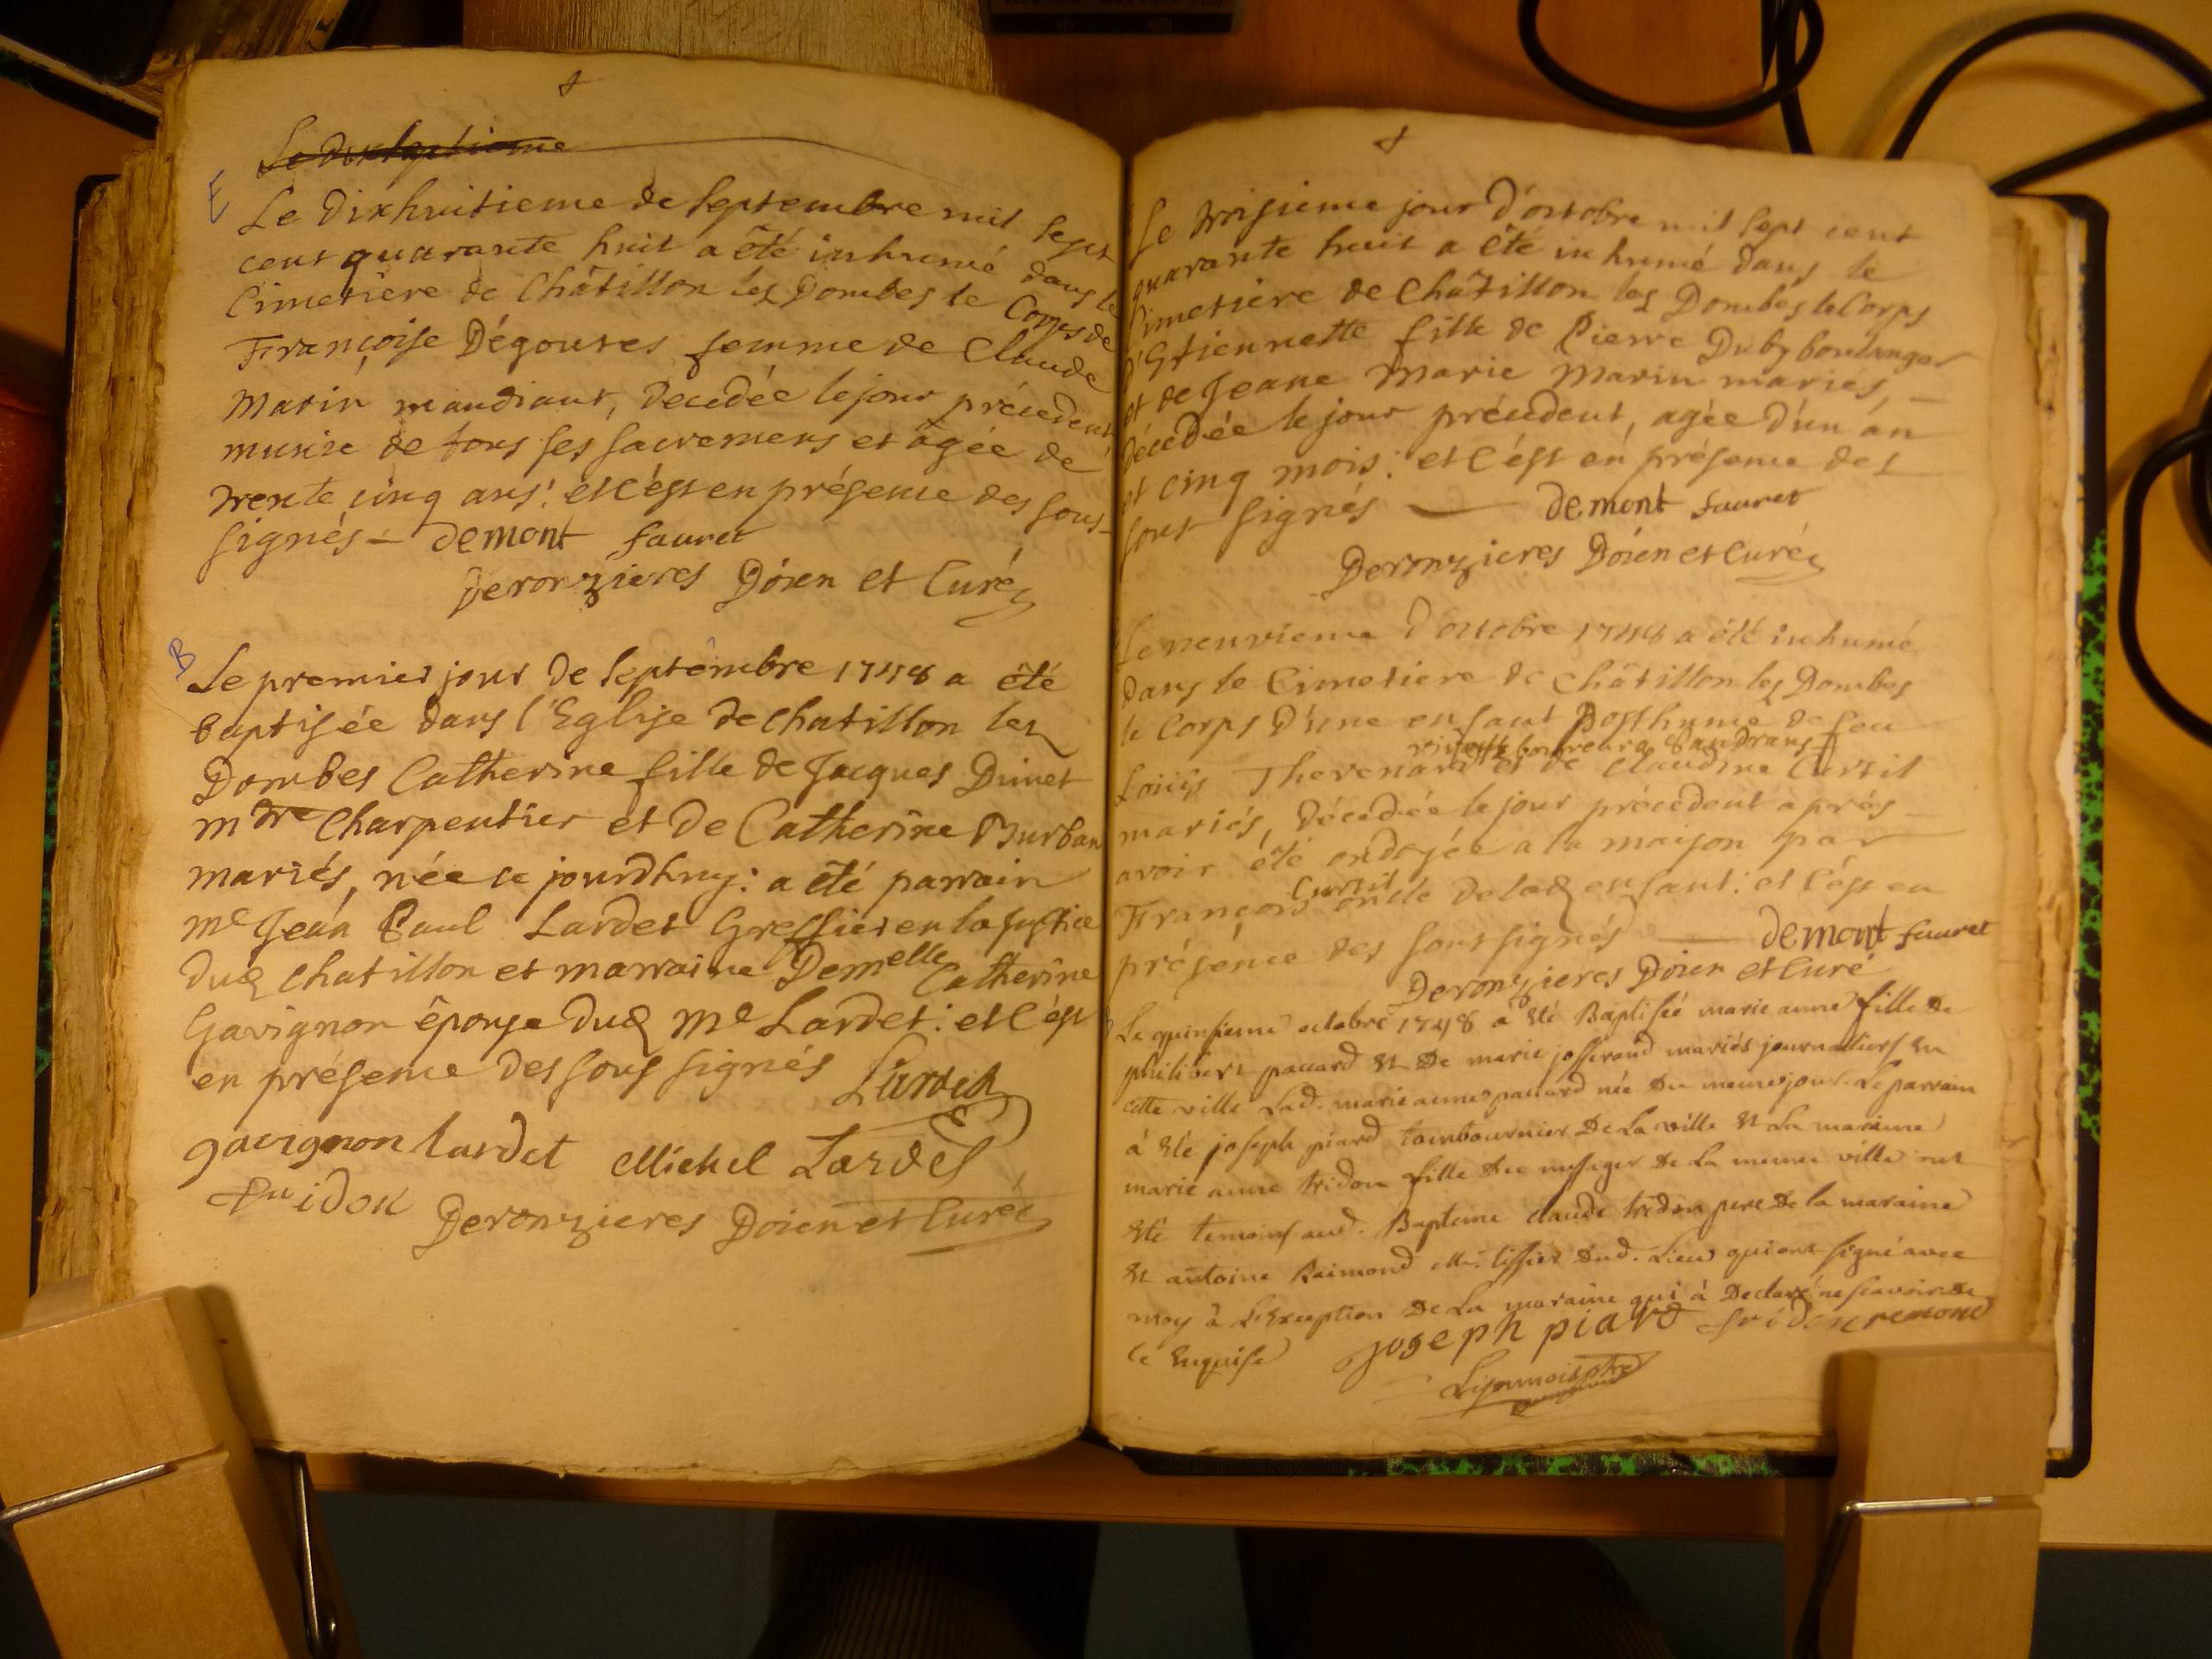 Le dixseptieme
E
Le Dixhuitieme de Septembre mil sept
cent quarante huit a été inhumé dans le
Cimetiere de Châtillon les Dombes le Corps de
Françoise Dégoutes femme de Claude
Marin mandiant, Décedée le jour précedent
munie de tous ses sacremens et âgée de
trente cinq ans: et c'ést en présence des sous-
signés - demont fauret
Deronzieres Doien et Curé
B
Le premier jour de Septembre 1748 a été
baptisée dans l'Eglise de chatillon les
Dombes Catherine fille de Jacques
mtre Charpentier et de Catherine Burban
mariés, née ce jourdhuy: a été parrain
me Jean Paul Lardet Greffier en la justice
dud chatillon et marraine Demelle Catherine
Gavignon épouse dud Me Lardet: et c'ést
en présence des sous signés Lardet
gavignon lardet Michel Lardet
tridon Deronzieres Doien et Curé
Le troisieme jour d'octobre mil sept cent
quarante huit a été inhumé dans le
Cimetiere de Châtillon les Dombes le Corps
d'Estiennette fille de Pierre Duby boulanger
et de Jeane Marie Marin mariés,
décedée le jour précedent, agée d'un án
et cinq mois: et c'ést en présence des
sous signés demont fauret
Deronzieres Doien et Curé
Le neuvieme d'octobre 1748 a été inhumé
dans le Cimetiere de Châtillon les Dombes
le Corps d'une enfant Posthume de feu
Sandrans
Louis Thevenard et de Claudine Curtil
mariés, Décedée le jour précedent aprés
avoir été ondoyée a la maison par
Curtil
François oncle de lad enfant: et c'ést en
présence des sous signés demont fauret
Deronzieres Doien et Curé
Le quinsieme octobre 1748 a Eté Baptisée marie anne fille de
philibert pauard Et De marie josserand mariés journaliers En
cette ville Lad. marie anne pauard née Du meme jour. Le parrain
à Eté joseph piard tambournier De La ville Et La maraine
marie anne tridon fille Du messager De La meme ville ont
Eté temoins aud. Bapteme claude tridon pere De la maraine
Et antoine Raimond Me. tissier Dud. Lieu qui ont signé avec
moy à L'Exception De La maraine qui à Declaré ne scavoir De
ce Enquise joseph piard tridon remond
Lijonnois ptre